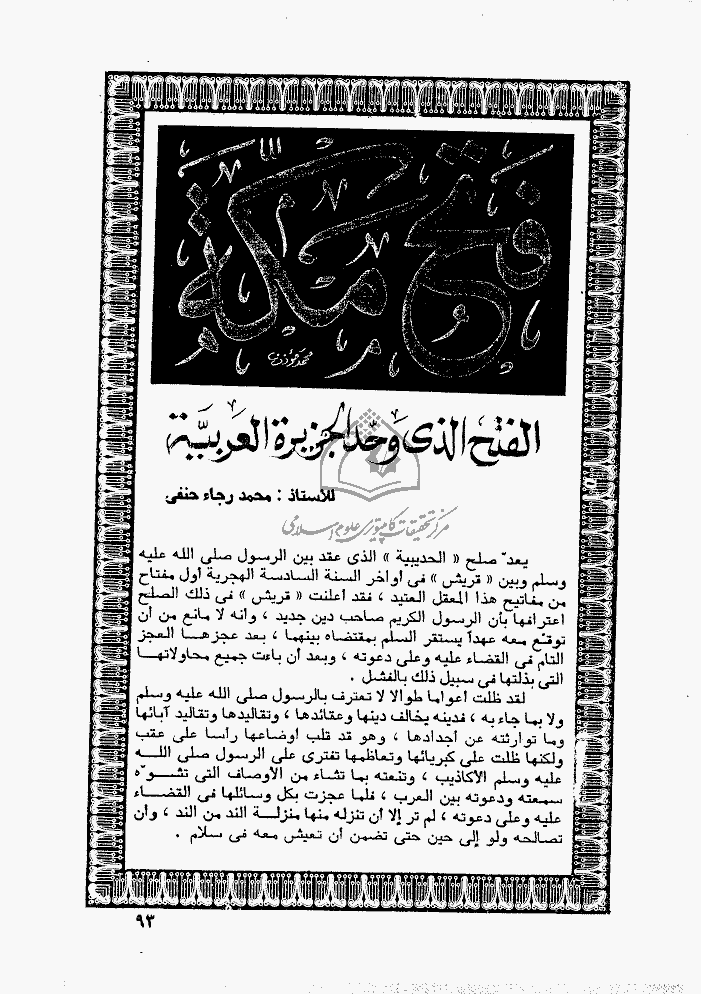 فتح مكة
الفتح الذى وحّد الجزيرة العربيّة
للأستاذ : محمد رجاء حنفى
مركز تحقيقات كامپيوترى علوم اسلامى
يعدّ صلح « الحديبية » الذى عقد بين الرسول صلى الله عليه
وسلم وبين « قريش » فى أواخر السنة السادسة الهجرية أول مفتاح
من مفاتيح هذا المعقل العتيد ، فقد أعلنت « قريش » فى ذلك الصلح
اعترافها بأن الرسول الكريم صاحب دين جديد ، وانه لا مانع من أن
توقع معه عهداً يستقر السلم بمقتضاه بينهما ، بعد عجزها العجز
التام فى القضاء عليه وعلى دعوته ، وبعد أن باءت جميع محاولاتها
التى بذلتها فى سبيل ذلك بالفشل .
لقد ظلت أعواما طوالا لا تعترف بالرسول صلى الله عليه وسلم
ولا بما جاء به ، فدينه يخالف دينها وعقائدها ، وتقاليدها وتقاليد آبائها
وما توارثته عن أجدادها ، وهو قد قلب أوضاعها رأسا على عقب
ولكنها ظلت على كبريائها وتعاظمها تفترى على الرسول صلى الله
عليه وسلم الأكاذيب ، وتنعته بما تشاء من الأوصاف التى تشوّه
سمعته ودعوته بين العرب ، فلما عجزت بكل وسائلها فى القضاء
عليه وعلى دعوته ، لم تر إلا أن تنزله منها منزلة الند من الند ، وأن
تصالحه ولو إلى حين حتى تضمن أن تعيش معه فى سلام .
٩٣